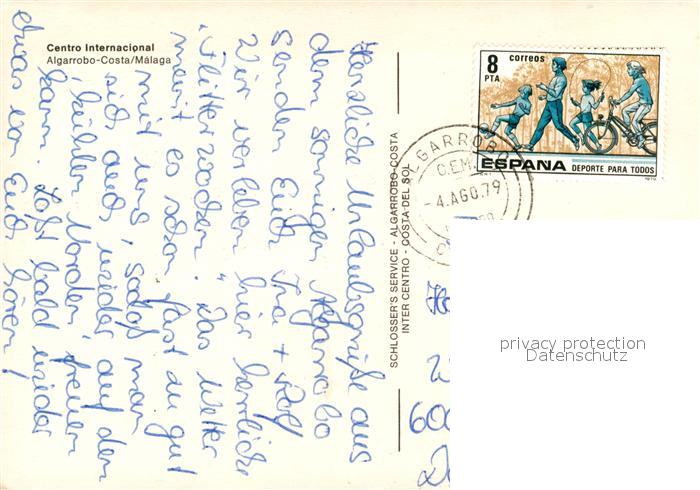 Centro Internacional
Algarrobo-Costa/Málaga
Herzliche Urlaubsgrüße aus
dem sonnigen Algarrobo
senden Euch + Rolf
Wir verleben hier herrliche
„Flitterwochen“. Das Wetter
meint es schon fast zu gut
mit uns, sodaß man
sich auch wieder auf den
kühlen Norden freuen
kann. Laßt bald wieder
etwas von Euch hören!
SCHLOSSER'S SERVICE - ALGARROBO-COSTA
INTER CENTRO - COSTA DEL SOL
8
PTA
correos
ESPANA DEPORTE PARA TODOS
ALGARROB
-4.AGO.79
600
privacy protection
Datenschutz